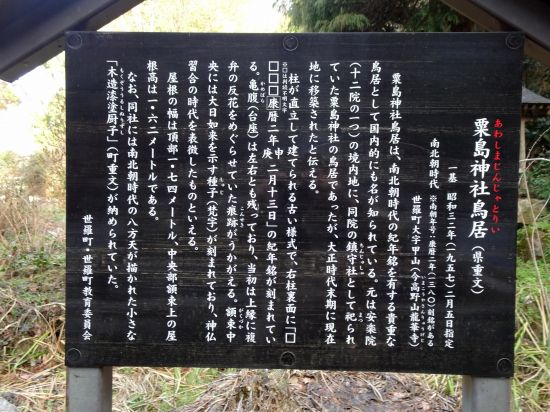 あわしまじんじゃとりい
粟島神社鳥居（県重文）
一基 昭和三二年（一九五七）二月五日指定
南北朝時代 ※南朝年号：康暦二年（一三八〇）刻銘がある
世羅町大字甲山（今高野山龍華寺）
粟島神社鳥居は、南北朝時代の紀年銘を有する貴重な
鳥居として国内的にも名が知られている。元は安楽院
（十二院の一つ）の境内地に、同院の鎮守社として祀られ
ていた粟島神社の鳥居であったが、大正時代末期に現在
地に移築されたと伝える。
柱が直立して建てられる古い様式で、右柱裏面に「□
※□は判読不明文字
□□□康暦二年庚申二月十三日」の紀年銘が刻まれてい
る。亀腹（台座）は左右とも残っており、当初は上縁に複
弁の反花をめぐらせていた痕跡がうかがえる。額束中
央には大日如来を示す種子（梵字）が刻まれており、神仏
習合の時代を表徴したものといえる。
屋根の幅は頂部一・七四メートル、中央部額束上の屋
根高は一・六二メートルである。
なお、同社には南北朝時代の八方天が描かれた小さな
もくぞううるしぬりずし
「木造漆塗厨子」（町重文）が納められていた。
世羅町・世羅町教育委員会